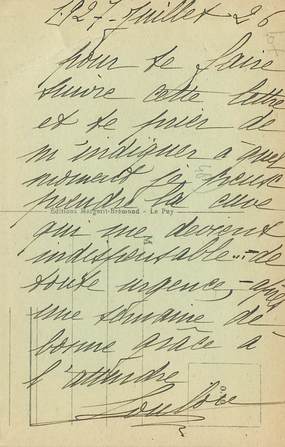 1927 - Juillet 26
pour te faire
suivre cette lettre
et te prier de
m'indiquer à quel
moment je peux
prendre la cure
Editions Margerit-Brémond - Le Puy
qui me devient
indispensable - de
toute urgence, -
une semaine de
bonne grâce a
l'attendre